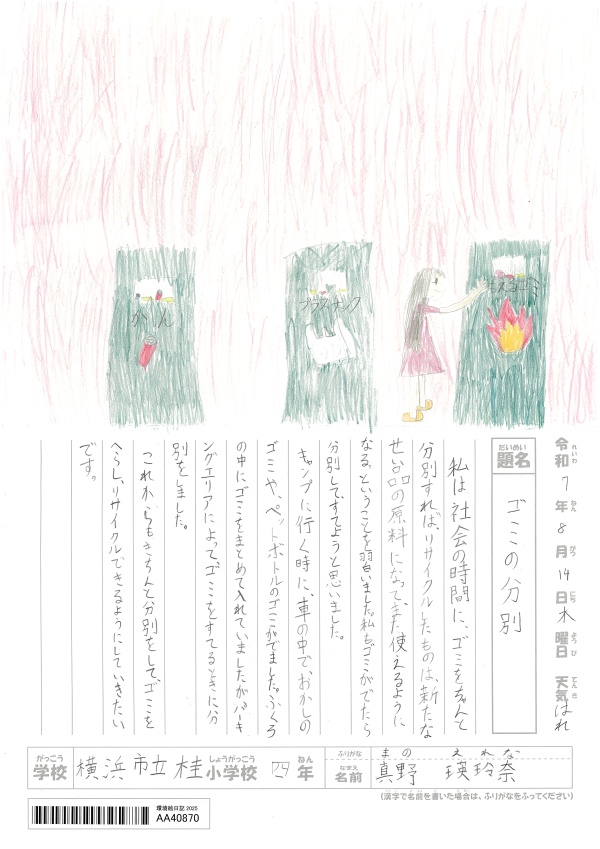 かん
プラスチック
もえるゴミ
令和7年8月14日木曜日 天気はれ
れいわ ねん がつ にち ようび てんき
だいめい
題名 ゴミの分別
私は社会の時間に、ゴミをちゃんと
分別すれば、リサイクルしたものは、新たな
せい品の原料になって、また使えるように
なるということを習いました。私も、ゴミがでたら
分別してすてようと思いました。
キャンプに行く時に、車の中でおかしの
ゴミや、ペットボトルのゴミがでました。ふくろ
の中にゴミをまとめて入れていましたがパーキ
ングエリアによってゴミをすてるときに分
別をしました。
これからもきちんと分別をして、ゴミを
へらし、リサイクルできるようにしていきたい
です。
がっこう しょうがっこう ねん
学校 横浜市立桂小学校 四年
ふりがな まの えれな
なまえ
名前 真野 瑛玲奈
(漢字で名前を書いた場合は、ふりがなをふってください)
環境絵日記 2025
AA40870